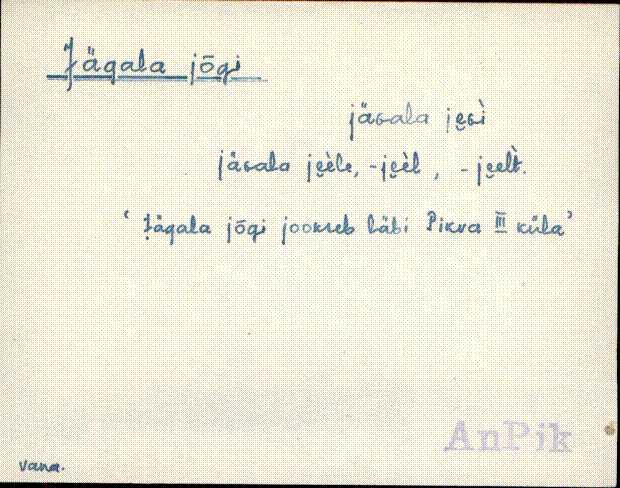 Jägala jõgi
jäɢala je̮ɢì
jäɢala je̮èle, -je̮èl, -je̮elt̀.
‘Jägala jõgi jookseb läbi Pikva III küla’
AnPik
vana.